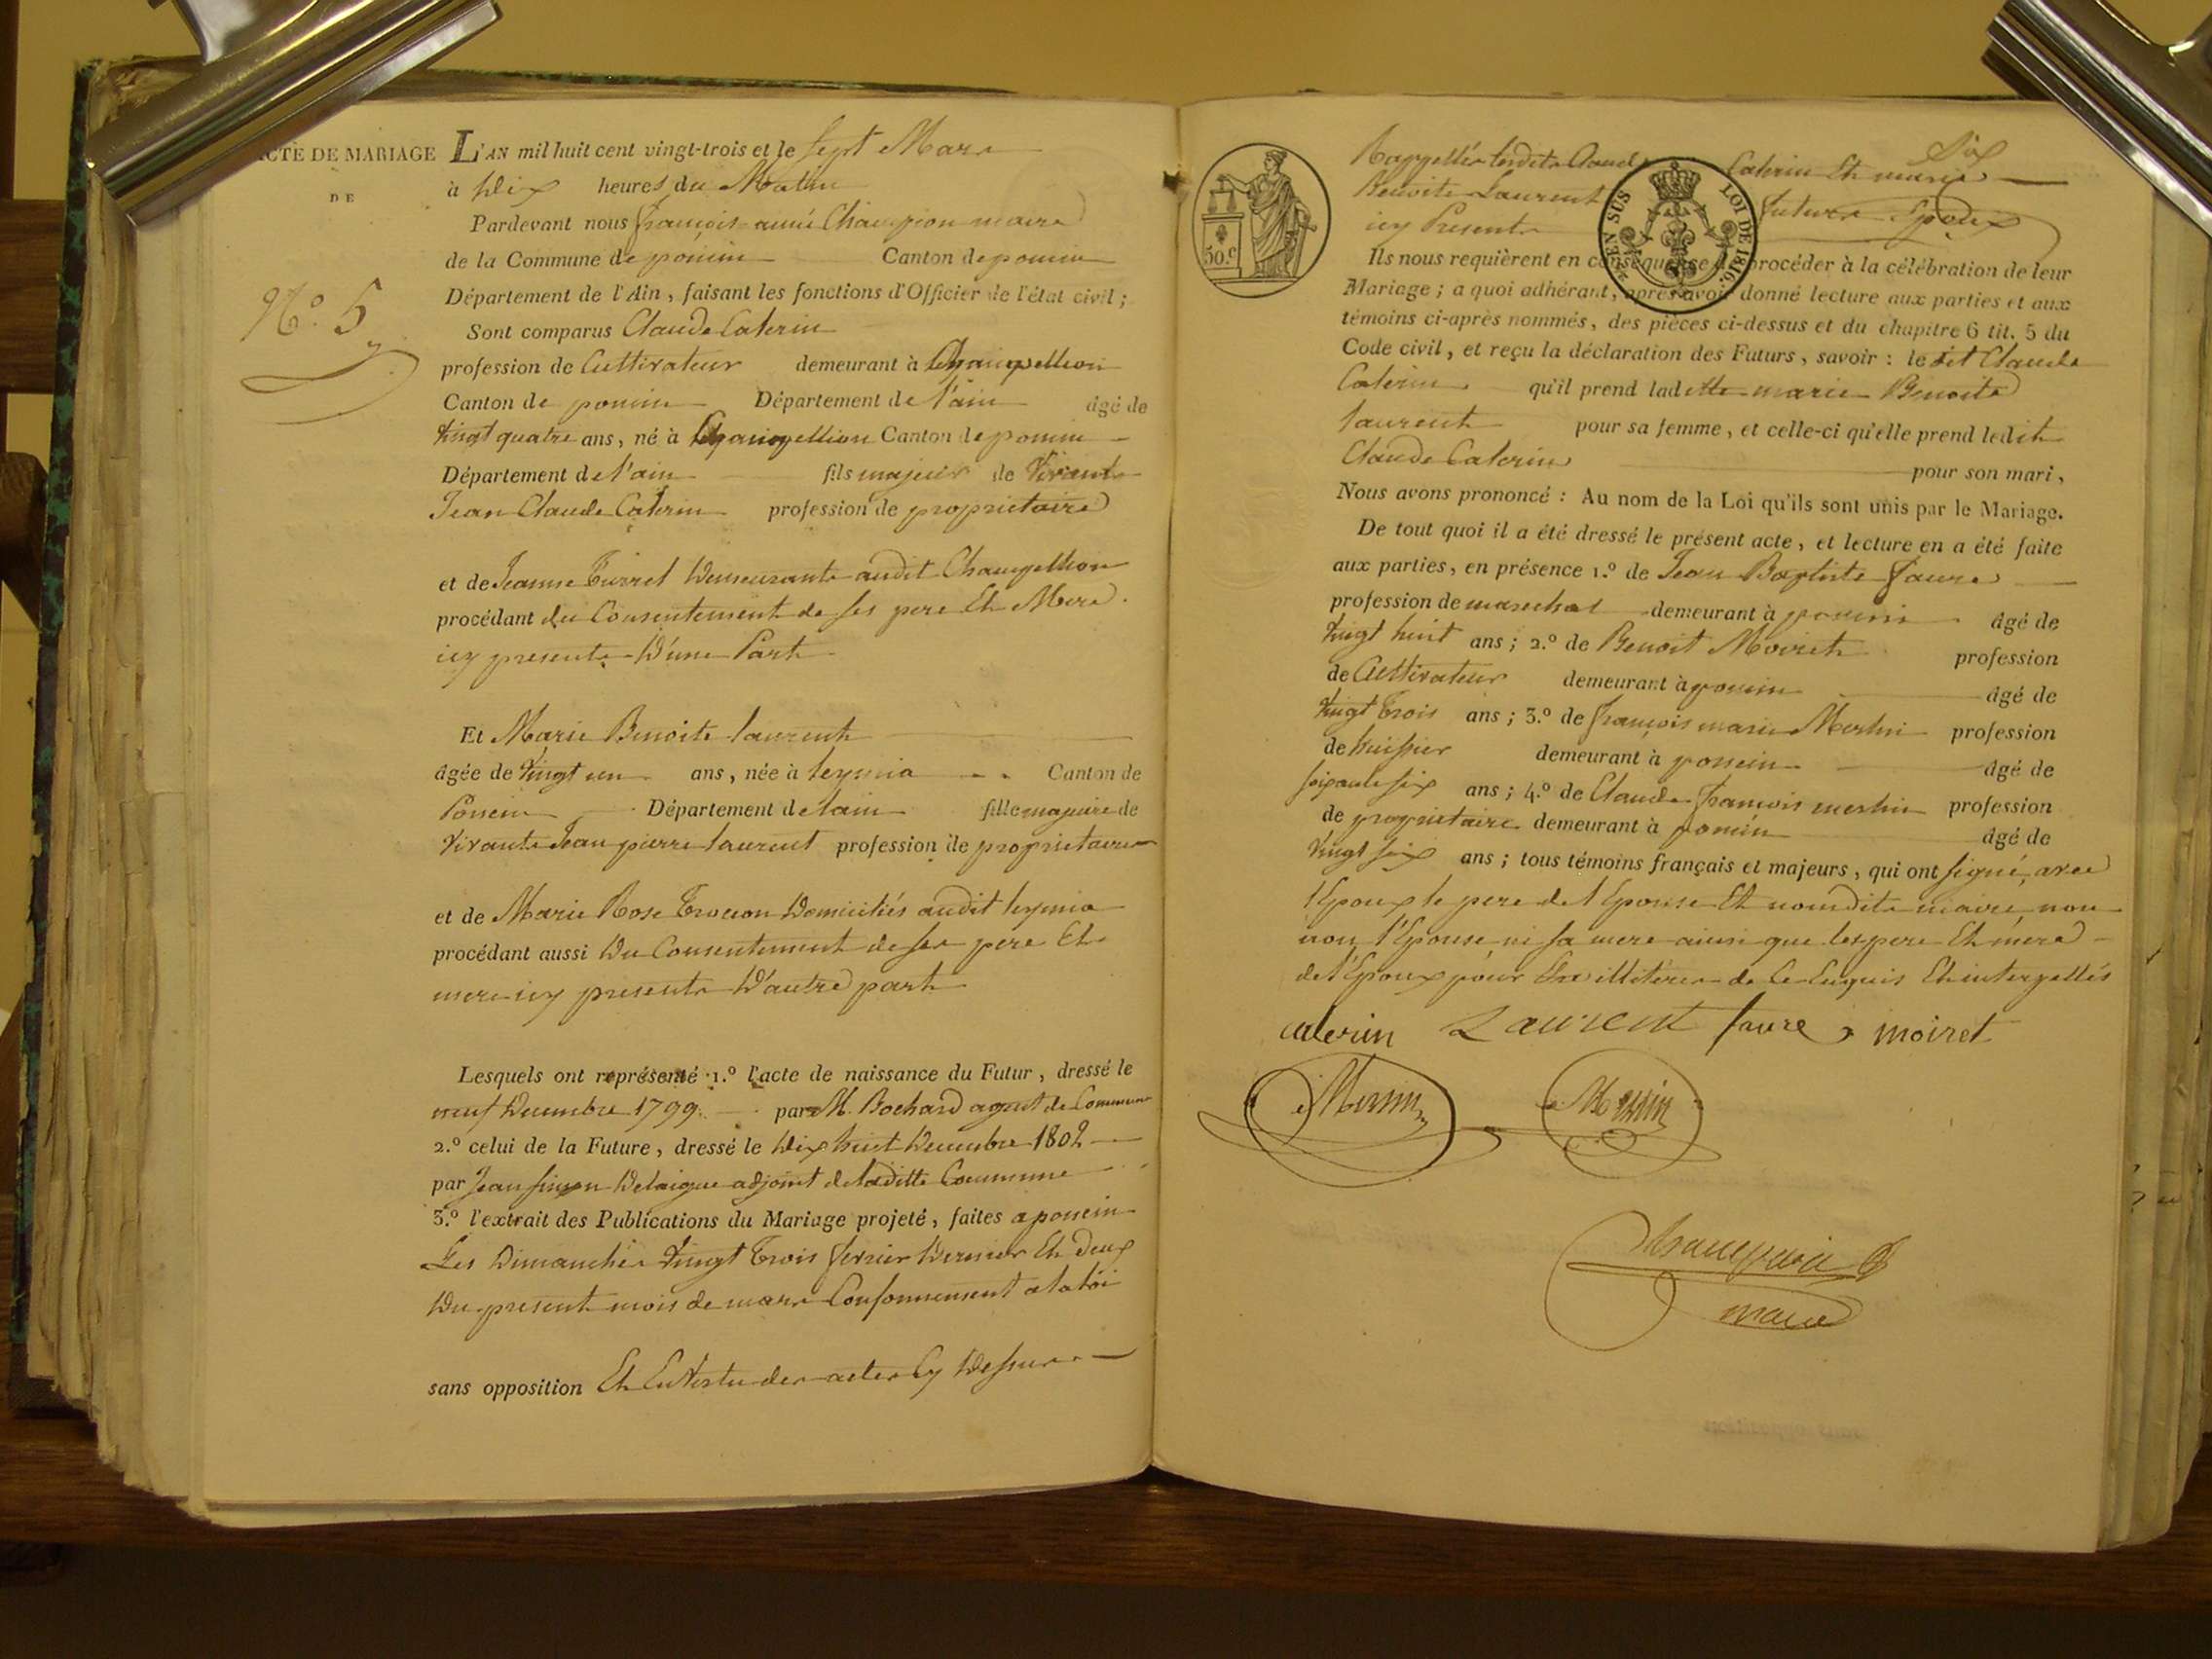 ACTE DE MARIAGE
DE
N.º 5
L'AN mil huit cent vingt-trois et le sept Mars
à Dix heures du Matin
Pardevant nous françois aimé Champion maire
de la Commune de poncin Canton de poncin
Département de l'Ain, faisant les fonctions d'Officier de l'état civil;
Sont comparus Claude Caterin
profession de Cultivateur demeurant à Champellion
Canton de poncin Département de l'ain âgé de
vingt quatre ans, né à Champellion Canton de poncin
Département de l'ain fils majeur de Vivants
Jean Claude Caterin profession de proprietaire
et de Jeanne Demeurants audit Champellion
procédant du Consentement de ses pere Et Mere
icy presents D'une Part
Et Marie Benoite laurent
âgée de Vingt un ans, née à leymia Canton de
Poncin Département de lain fille majeure de
Vivants Jean pierre laurent profession de proprietaire
et de Marie Rose Domiciliés audit leymia
procédant aussi Du Consentement de ses pere Et
mere icy presents D'autre part
Lesquels ont représenté 1.º l'acte de naissance du Futur, dressé le
neuf Decembre 1799. par M. Bochard agent de Commune
2.º celui de la Future, dressé le Dix huit Decembre 1802
par Jean Delaigue adjoint de laditte Commune
3.º l'extrait des Publications du Mariage projeté, faites a poncin
Les Dimanches Vingt Trois fevrier Dernier Et Deux
Du present mois de mars Conformement a la loi
sans opposition Et En Vertu des actes Cy Dessus
Six
50.C
EN SUS LOI DE 1816.
Rappellés lesdits Claude Caterin Et marie
Benoite Laurent futurs Epoux
icy Presents
Ils nous requièrent en conséquence de procéder à la célébration de leur
Mariage; a quoi adhérant, après avoir donné lecture aux parties et aux
témoins ci-après nommés, des pièces ci-dessus et du chapitre 6 tit. 5 du
Code civil, et reçu la déclaration des Futurs, savoir : le dit Claude
Caterin qu'il prend ladette marie Benoite
laurent pour sa femme, et celle-ci qu'elle prend ledit
Claude Caterin pour son mari,
Nous avons prononcé : Au nom de la Loi qu'ils sont unis par le Mariage.
De tout quoi il a été dressé le présent acte, et lecture en a été faite
aux parties, en présence 1.º de Jean Baptiste faure
profession de marechal demeurant à poncin âgé de
Vingt huit ans; 2.º de Benoit Moiret profession
de Cultivateur demeurant à poncin âgé de
Vingt Trois ans; 3.º de françois marie Merlin profession
de huissier demeurant à poncin âgé de
soixante six ans; 4.º de Claude françois merlin profession
de proprietaire demeurant à poncin âgé de
Vingt six ans; tous témoins français et majeurs, qui ont signé, avec
l'Epoux le pere de l'Epouse Et nousdits maire, non
non l'Epouse ni sa mere ainsi que les pere Et mere
de l'Epoux pour Etre illitérés de Ce Enquis Et interpellés
caterin Laurent faure moiret
Merlin Merlin
Champion
maire